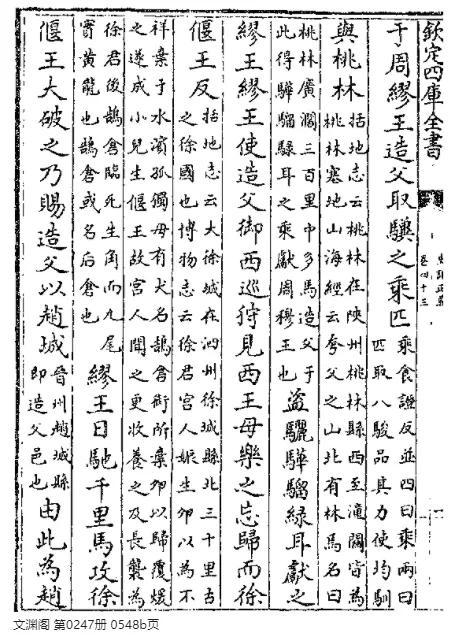 欽定四庫全書
史記正義
卷四十三
于周繆王造父取驥之乘匹
乘食證反並四曰乘兩曰
匹取八駿品其力使均馴
與桃林
括地志云桃林在陜州桃林縣西至潼關皆為
桃林塞地山海經云夸父之山北有林馬名曰
桃林廣濶三百里中多馬造父于
此得驊騮騄耳之乘獻周穆王也
盜驪驊騮緑耳獻之
繆王繆王使造父御西巡狩見西王母樂之忘歸而徐
偃王反
括地志云大徐城在泗州徐城縣北三十里古
之徐國也博物志云徐君宫人娠生卵以為不
祥棄于水濱孤獨母有犬名鵠倉銜所棄卵以歸覆煖
之遂成小兒生偃王故宫人聞之更收養之及長襲為
徐君後鵠倉臨死生角而九尾
實黄龍也鵠倉或名后倉也
繆王日馳千里馬攻徐
偃王大破之乃賜造父以趙城
晉州趙城縣
即造父邑也
由此為趙
文渊阁 第0247册 0548b页